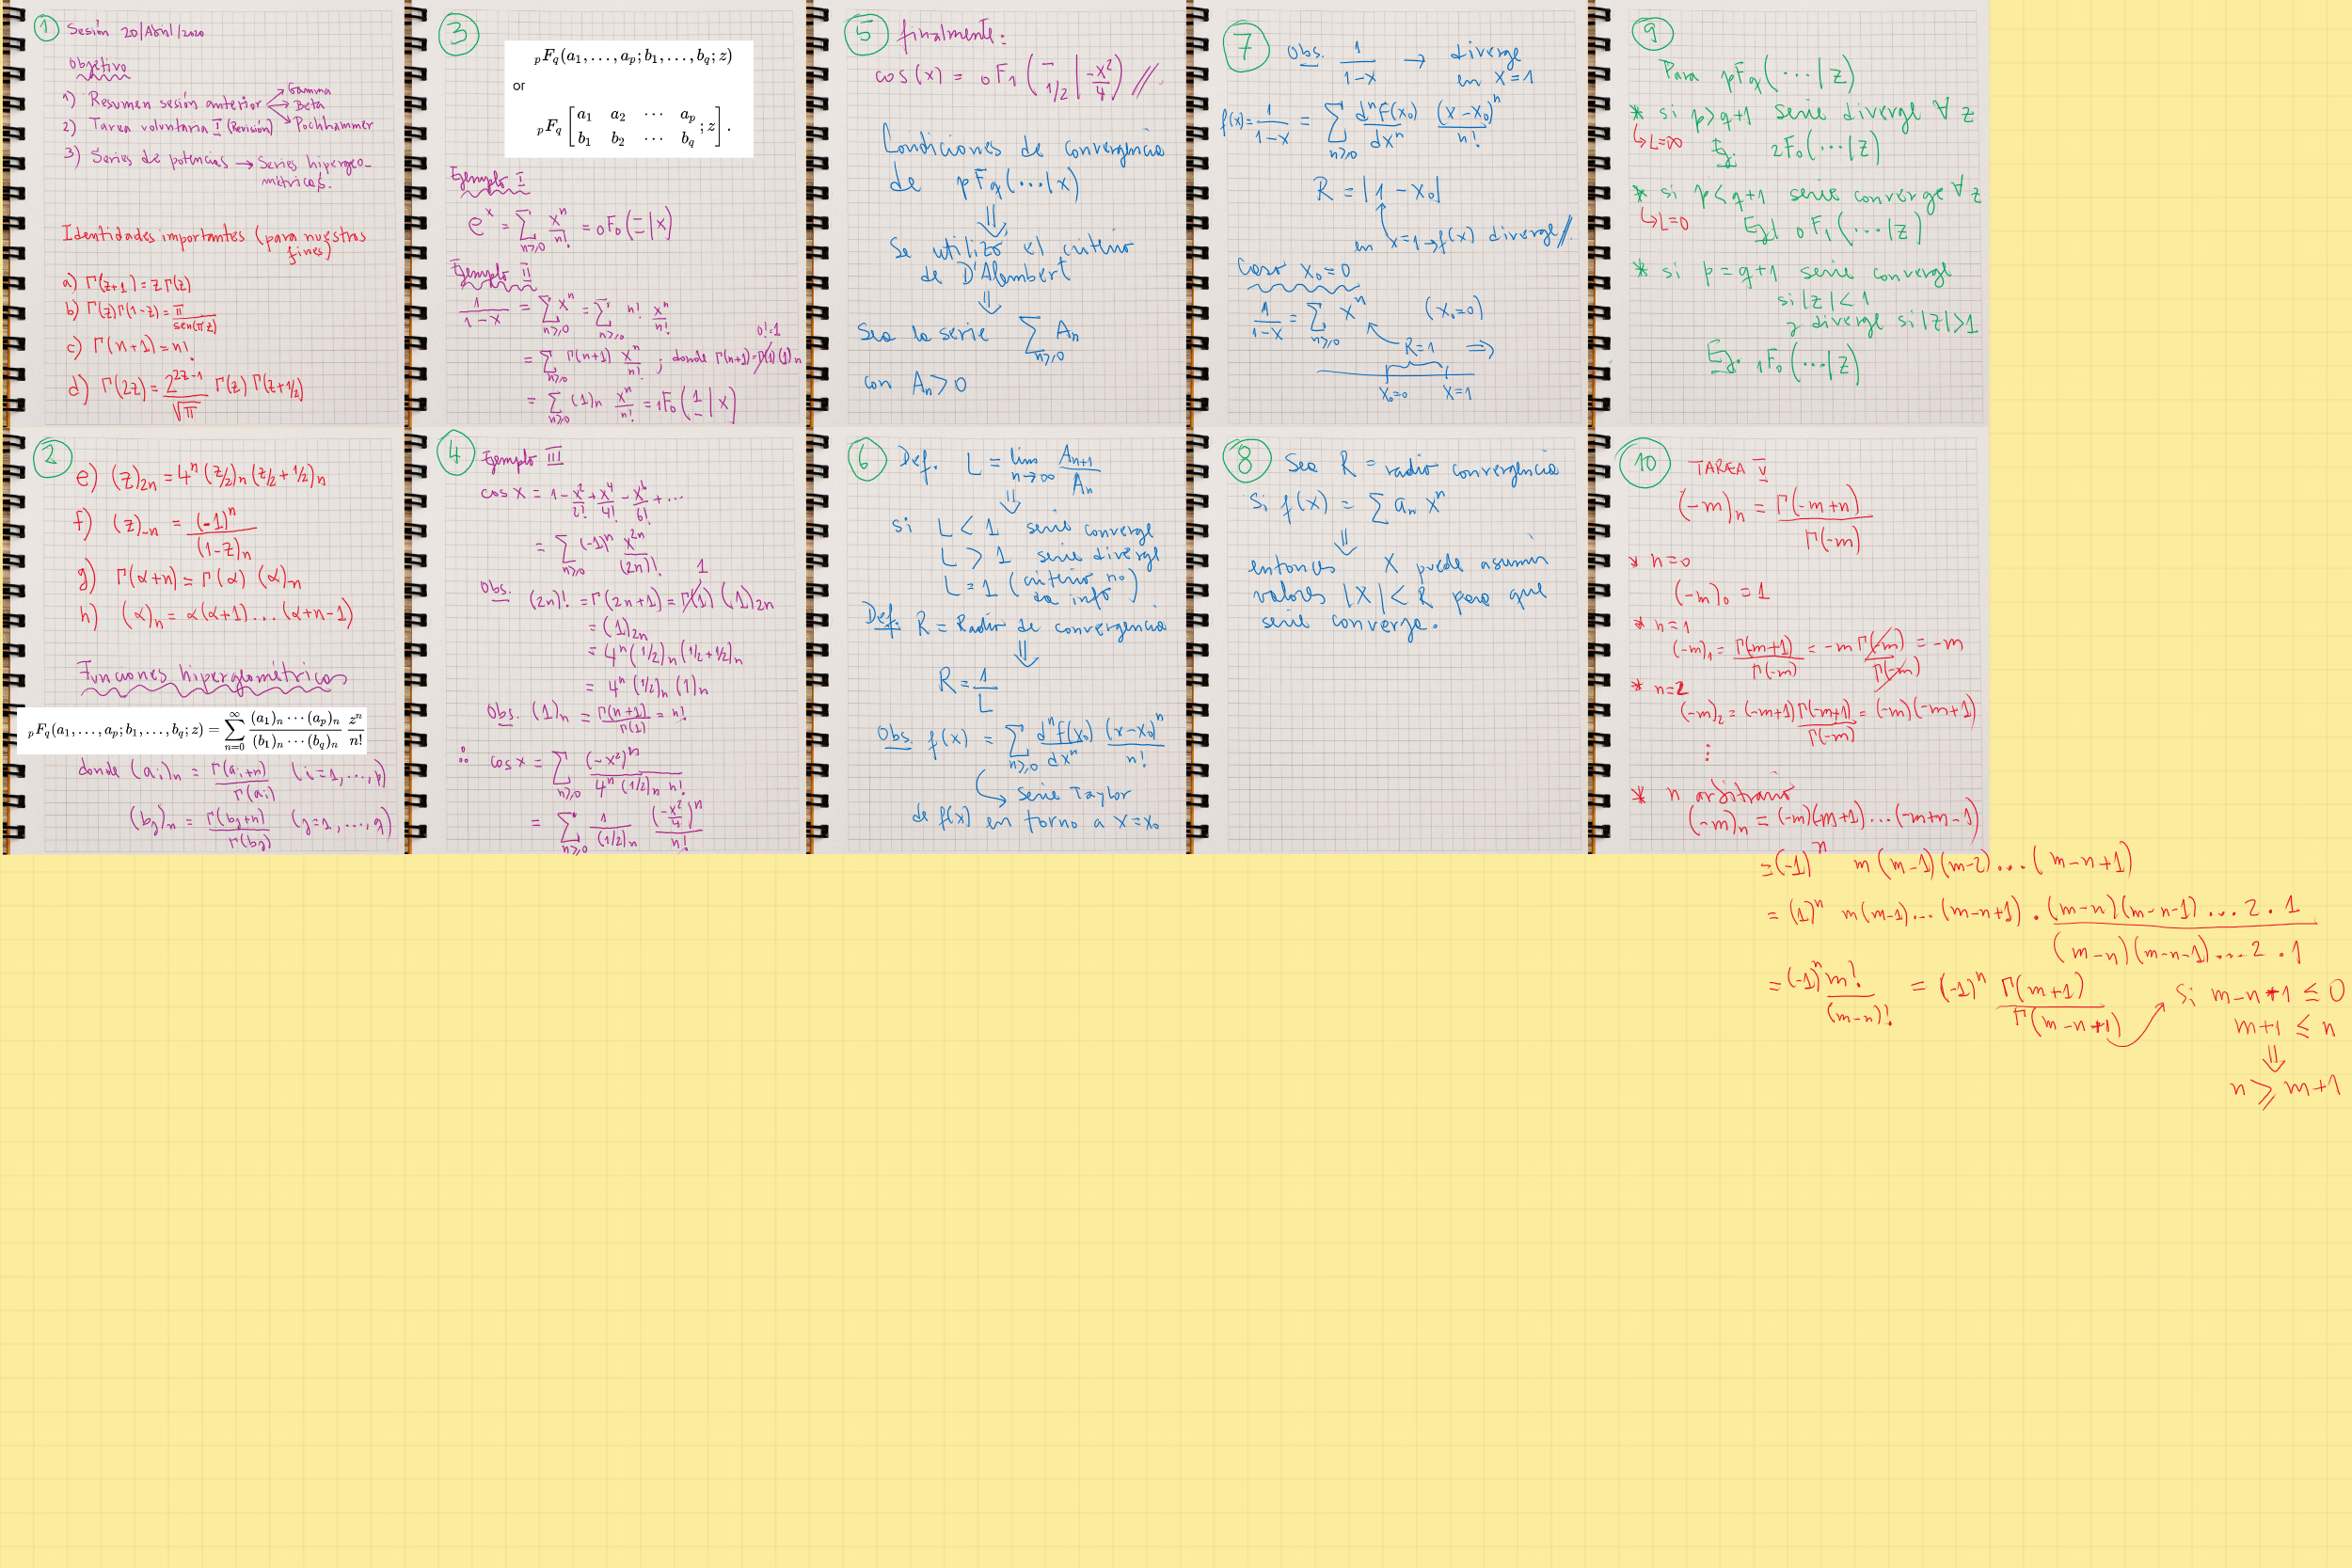 ① Sesión 20/Abril/2020
Objetivo
1) Resumen sesión anterior → Gamma → Beta → Pochhammer
2) Tarea voluntaria I (Revisión)
3) Series de potencias → Series hipergeo-
métricas.
Identidades importantes (para nuestros
fines)
a) Γ(z+1) = z Γ(z)
b) Γ(z)Γ(1-z) = π / sen(πz)
c) Γ(n+1) = n!
d) Γ(2z) = 2^{2z-1} / √π Γ(z) Γ(z+1/2)
② e) (z)_{2n} = 4^n (z/2)_n (z/2 + 1/2)_n
f) (z)_{-n} = (-1)^n / (1-z)_n
g) Γ(α+n) = Γ(α) (α)_n
h) (α)_n = α(α+1)...(α+n-1)
Funciones hipergeométricas
pFq(a1, ..., ap; b1, ..., bq; z) = ∑_{n=0}^{∞} (a1)_n ··· (ap)_n / (b1)_n ··· (bq)_n z^n / n!
donde (ai)_n = Γ(ai+n) / Γ(ai) (i=1,...,p)
(bj)_n = Γ(bj+n) / Γ(bj) (j=1,...,q)
③
pFq(a1, ..., ap; b1, ..., bq; z)
or
pFq [ a1 a2 ··· ap
b1 b2 ··· bq ; z ] .
Ejemplo I
e^x = ∑_{n≥0} x^n / n! = 0F0 ( – – | x )
Ejemplo II
1 / 1-x = ∑_{n≥0} x^n = ∑_{n≥0} n! x^n / n!
0!=1
= ∑_{n≥0} Γ(n+1) x^n / n! ; donde Γ(n+1) = Γ(1) (1)_n
= ∑_{n≥0} (1)_n x^n / n! = 1F0 ( 1 – | x )
④ Ejemplo III
cos x = 1 - x²/2! + x⁴/4! - x⁶/6! + ...
= ∑_{n≥0} (-1)^n x^{2n} / (2n)!
1
Obs. (2n)! = Γ(2n+1) = Γ(1) (1)_{2n}
= (1)_{2n}
= 4^n (1/2)_n (1/2+1/2)_n
= 4^n (1/2)_n (1)_n
Obs. (1)_n = Γ(n+1) / Γ(1) = n!
∴ cos x = ∑_{n≥0} (-x²)^n / 4^n (1/2)_n n!
= ∑_{n≥0} 1 / (1/2)_n (-x²/4)^n / n!
⑤ finalmente:
cos(x) = 0F1 ( – 1/2 | -x²/4 ) //
Condiciones de convergencia
de pFq(...|x)
⇓
Se utilizó el criterio
de D'Alembert
⇓
Sea la serie ∑_{n≥0} An
con An > 0
⑥ Def. L = lim_{n→∞} A_{n+1} / A_n
⇓
si L < 1 serie converge
L > 1 serie diverge
L = 1 (criterio no
da info)
Def. R = Radio de convergencia
⇓
R = 1 / L
Obs. f(x) = ∑_{n≥0} d^n f(x0) / dx^n (x-x0)^n / n!
↳ Serie Taylor
de f(x) en torno a x=x0
⑦ Obs. 1 / 1-x → diverge
en x=1
f(x) = 1 / 1-x = ∑_{n≥0} d^n f(x0) / dx^n (x-x0)^n / n!
R = |1 - x0|
en x=1 → f(x) diverge //
Caso x0=0
1 / 1-x = ∑_{n≥0} x^n (x0=0)
R=1 ⇒
x0=0 x=1
⑧ Sea R = radio convergencia
Si f(x) = ∑ an x^n
⇓
entonces x puede asumir
valores |x| < R para que
serie converge.
⑨
Para pFq(...|z)
* si p>q+1 serie diverge ∀ z
↳ L=∞ Ej. 2F0(...|z)
* si p<q+1 serie converge ∀ z
↳ L=0 Ej 0F1(...|z)
* si p=q+1 serie converge
si |z|<1
y diverge si |z|>1
Ej. 1F0(...|z)
⑩ TAREA V
(-m)_n = Γ(-m+n) / Γ(-m)
* n=0
(-m)_0 = 1
* n=1
(-m)_1 = Γ(-m+1) / Γ(-m) = -m Γ(-m) / Γ(-m) = -m
* n=2
(-m)_2 = (-m+1) Γ(-m+1) / Γ(-m) = (-m)(-m+1)
⋮
* n arbitrario
(-m)_n = (-m)(-m+1)...(-m+n-1)
= (-1)^n m(m-1)(m-2)...(m-n+1)
= (1)^n m(m-1)...(m-n+1) · (m-n)(m-n-1)...2·1 / (m-n)(m-n-1)...2·1
= (-1)^n m! / (m-n)! = (-1)^n Γ(m+1) / Γ(m-n+1)
Si m-n+1 ≤ 0
m+1 ≤ n
⇓
n ≥ m+1